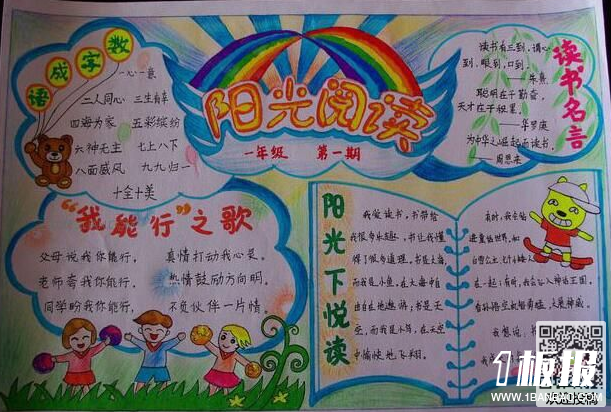 数字成语
一心一意
二人同心 三生有幸
四海为家 五彩缤纷
六神无主 七上八下
八面威风 九九归一
十全十美
阳光阅读
一年级 第一期
读书名言
读书有三到，谓心
到，眼到，口到。
——朱熹
聪明在于勤奋，
天才在于积累。
——华罗庚
为中华之崛起而读书。
——周恩来
“我能行”之歌
父母说我你能行， 真情打动我心灵。
老师夸我你能行， 热情鼓励方向明。
同学盼我你能行， 不负伙伴一片情。
阳光下悦读
我爱读书，书带给
我很多乐趣，书让我懂
得了很多道理。书是大海，
而我是小鱼，在大海中自
由自在地遨游；书是天
空，而我是小鸟，在天空
中愉快地飞翔。
有时，我会
进童话世界，和
白雪公主、七个小矮人
在一起；有时，我会
我想说，
1板报
WWW.1BANBAO.COM
欢迎投稿